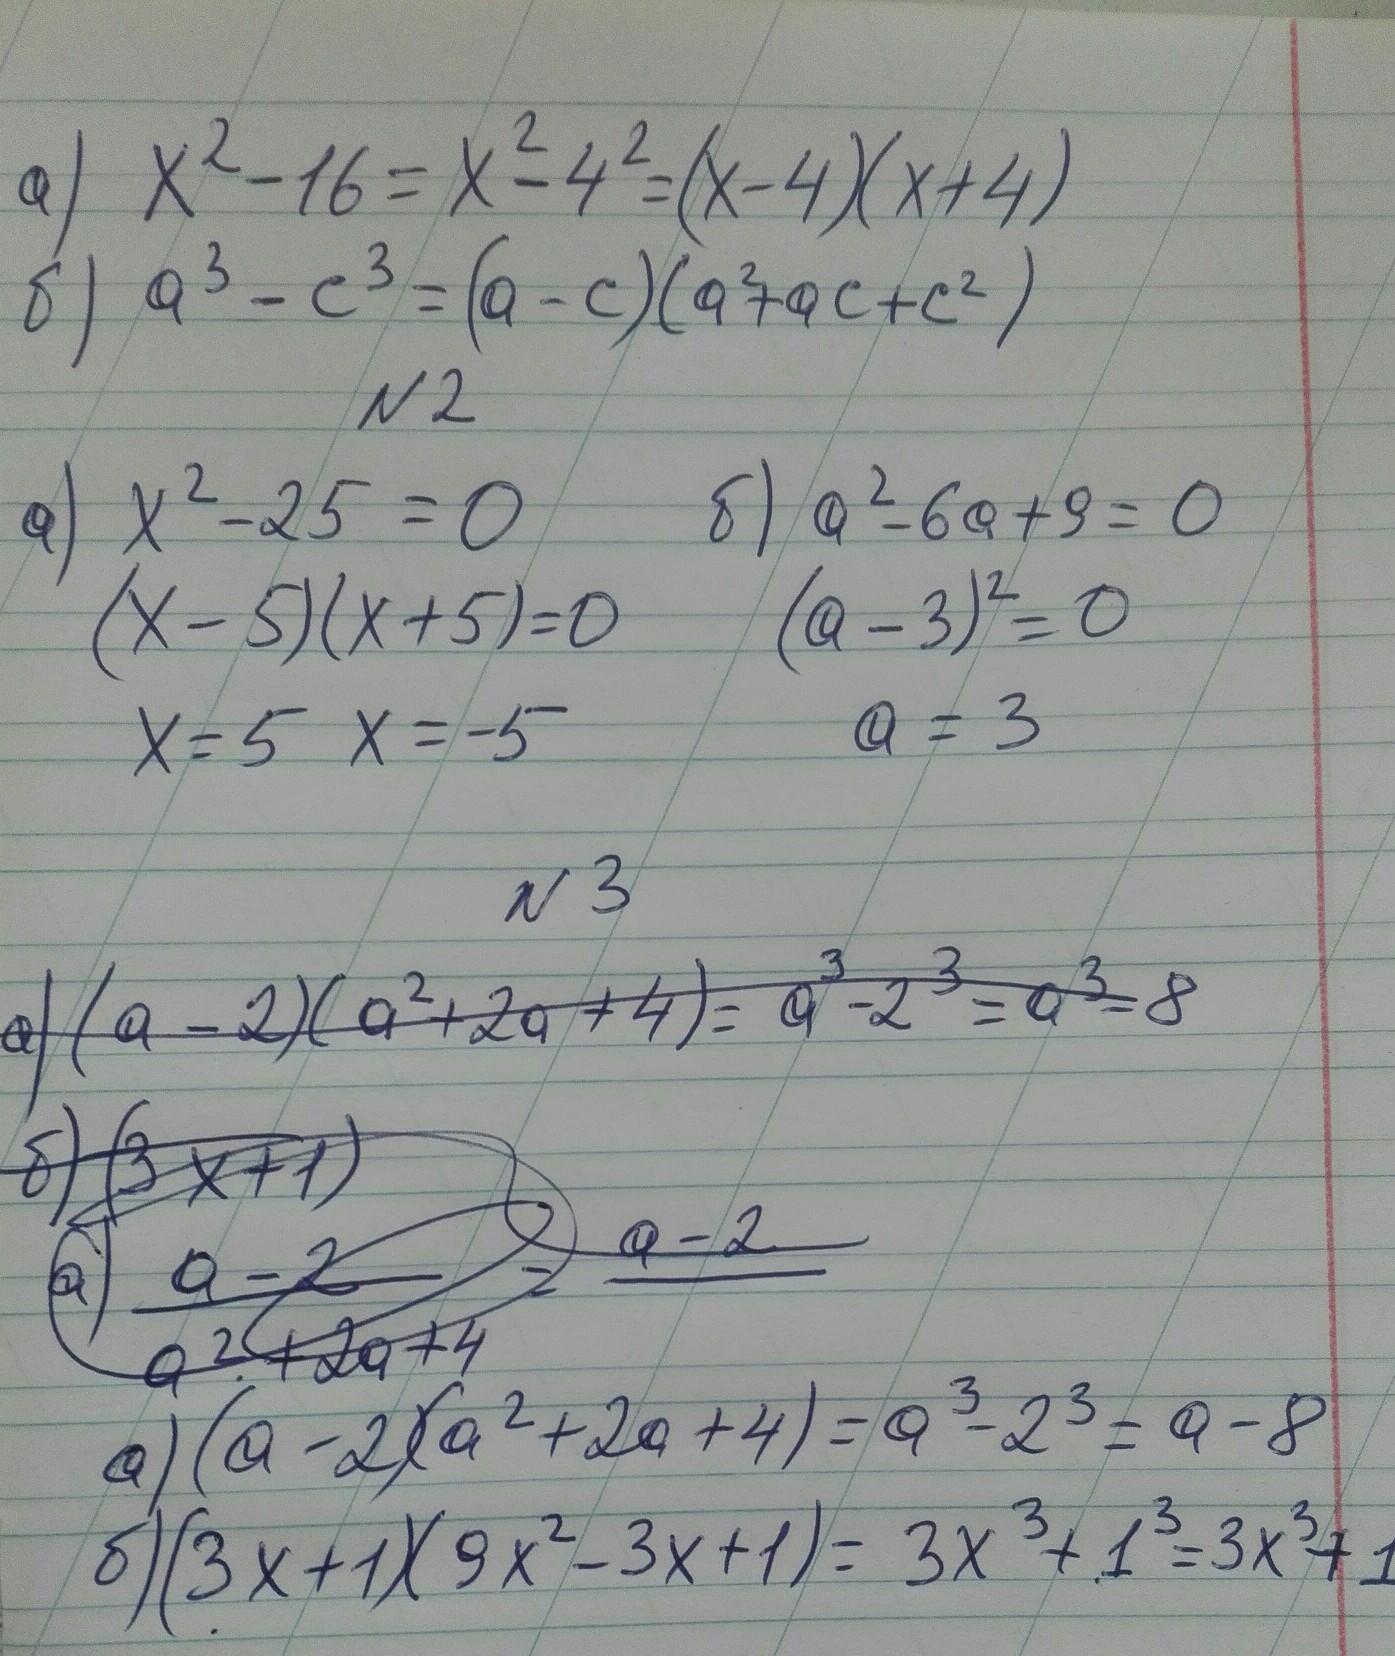 а) x² - 16 = x² - 4² = (x - 4)(x + 4)
б) a³ - c³ = (a - c)(a² + ac + c²)
N2
а) x² - 25 = 0 б) a² - 6a + 9 = 0
(x - 5)(x + 5) = 0 (a - 3)² = 0
x = 5 x = -5 a = 3
N3
а) (a - 2)(a² + 2a + 4) = a³ - 2³ = a³ - 8
б) (3x + 1)
а) a - 2 = a - 2
a² + 2a + 4
а) (a - 2)(a² + 2a + 4) = a³ - 2³ = a - 8
б) (3x + 1)(9x² - 3x + 1) = 3x³ + 1³ = 3x³ + 1